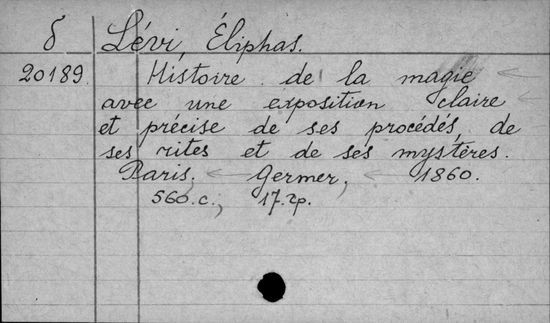 δ Lévi, Éliphas.
20189. Histoire de la magie
avec une exposition claire
et précise de ses procédés, de
ses rites et de ses mystères.
Paris, Germer, 1860.
560.c., 17.tр.